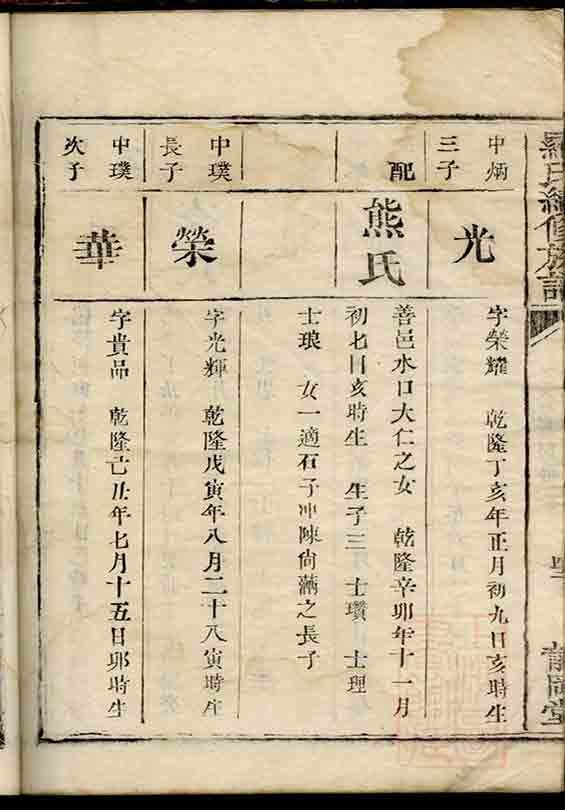 氏續修族譜
靜岡堂
中炳
三子
光
字榮耀 乾隆丁亥年正月初九日亥時生
配
熊氏
善邑水口大仁之女 乾隆辛卯年十一月
初七日亥時生 生子三 士瓚 士理
士琅 女一適石子冲陳尙滿之長子
中璞
長子
榮
字光輝 乾隆戊寅年八月二十八寅時生
中璞
次子
華
字貴品 乾隆己丑年七月十五日卯時生